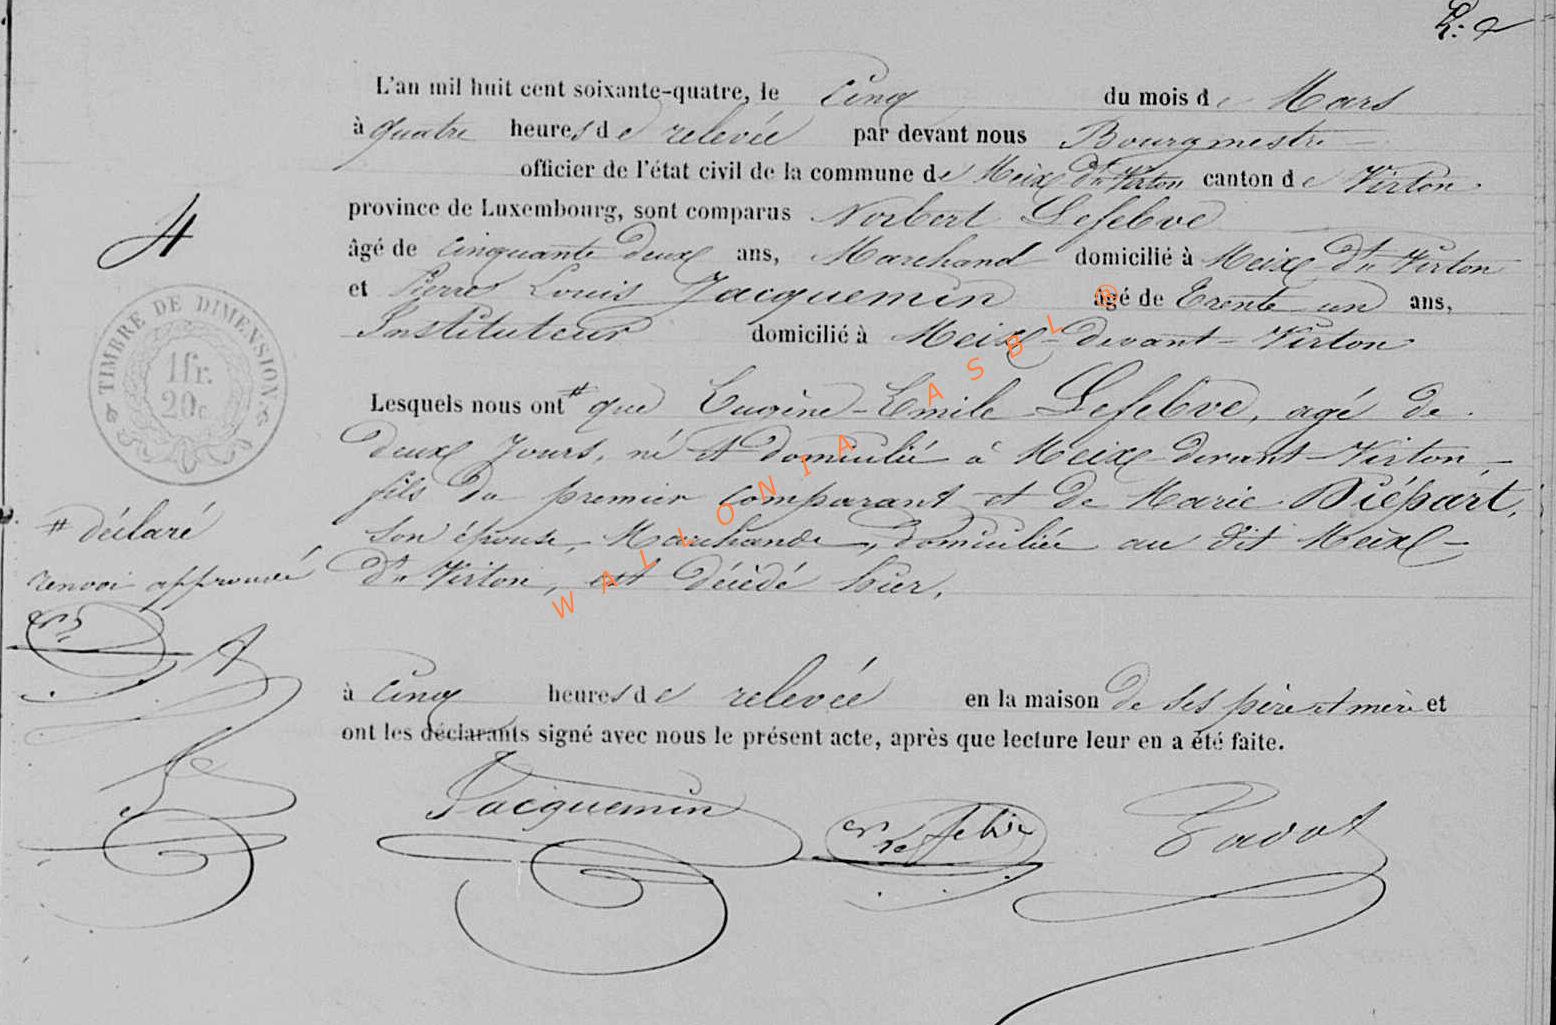 L'an mil huit cent soixante-quatre, le Cinq du mois de Mars
à quatre heures de relevée par devant nous Bourgmestre
officier de l'état civil de la commune de Meix dt Virton canton de Virton
province de Luxembourg, sont comparus Norbert Lefebve
âgé de Cinquante deux ans, Marchand domicilié à Meix dt Virton
et Pierre Louis Jacquemin âgé de Trente un ans,
Instituteur domicilié à Meix-devant-Virton
4
TIMBRE DE DIMENSION
1 fr.
20c
Lesquels nous ont # que Eugène-Emile Lefebve, agé de
deux Jours, né et domicilié à Meix-devant-Virton,
fils du premier Comparant et de Marie Diépart,
son épouse, Marchande, domiciliée au dit Meix-
dt Virton, est décédé hier,
# déclaré
renvoi approuvé
à Cinq heures de relevée en la maison de ses père et mère et
ont les déclarants signé avec nous le présent acte, après que lecture leur en a été faite.
Jacquemin
WALLONIA ASBL ®